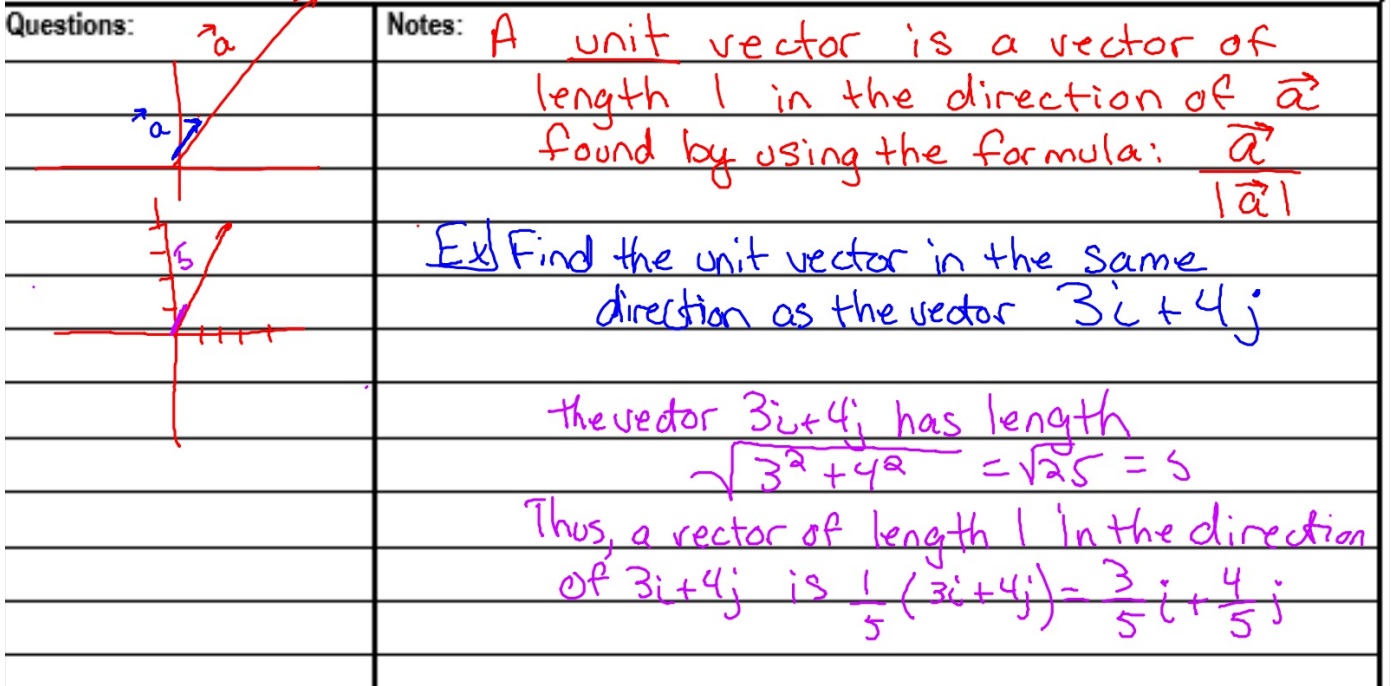 Questions:
→a
→a
5
Notes:
A unit vector is a vector of
length 1 in the direction of a⃗
found by using the formula: a⃗ / |a⃗|
Ex) Find the unit vector in the same
direction as the vector 3i + 4j
the vector 3i+4j has length
√3² + 4² = √25 = 5
Thus, a vector of length 1 in the direction
of 3i+4j is 1/5 (3i+4j) = 3/5 i + 4/5 j